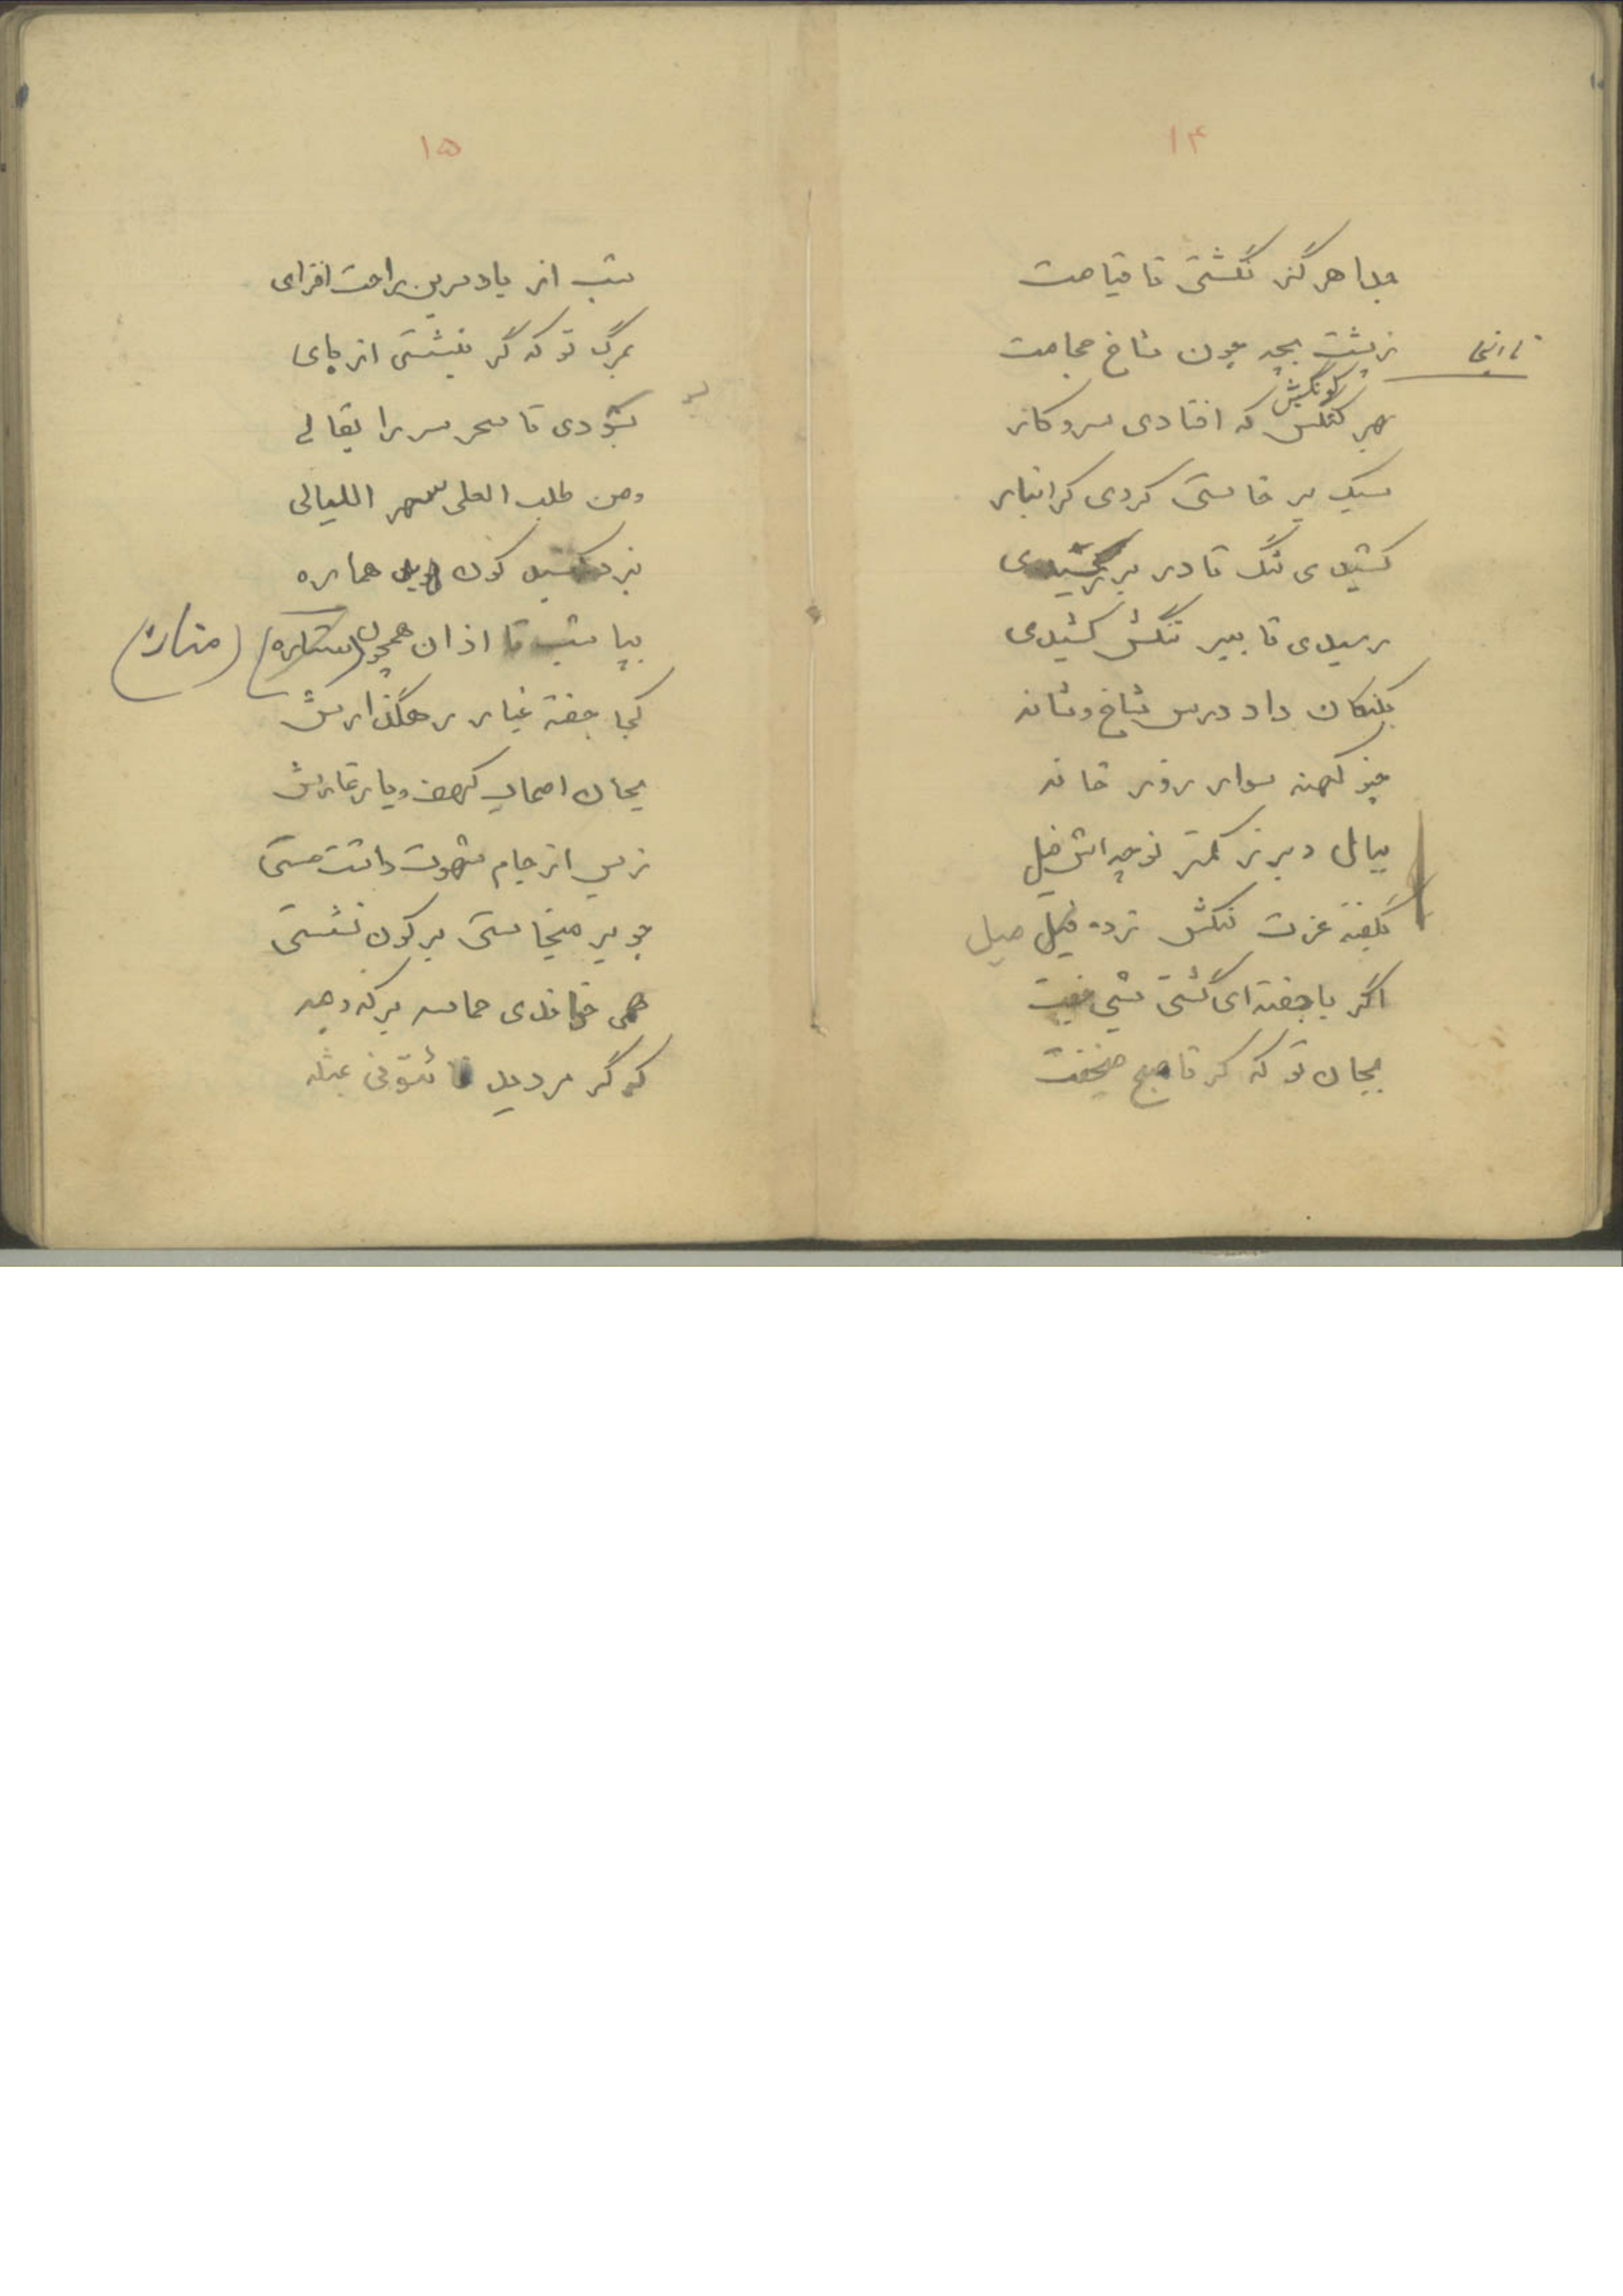 ۱۴
جدا هرگز نگشتی تا قیامت
ز پشت بچه چون شاخ حجامت
تا اینجا
کونکیش
بهر که افتادی سر و کار
سبک بر خاستی کردی گرانبار
کشیدی تنگ تا در بر
رسیدی تا بپیر تنگش کشیدی
بگنکان داد درس شاخ و شانه
چنو کهنه سوار روز خانه
بسال دیر تر کمتر نوچه اش فیل
بگفته عزت لنگش نزده فیل میل
اگر با جفته‌ای گشتی شبی جفت
بجان تو که گر تا صبح میخفت
۱۵
شب از یاد سرین راحت افزای
بمرگ تو که گر بنشستی از پای
بسودی تا سحر سر را بقالی
ومن طلب العلی سهر اللیالی
کون هماره
بپا شب تا اذان همچون (ستاره) (مناره)
کجا جفته غبار رهگذارش
بجان اصحاب کهف و یار غارش
ز بس از جام شهوت داشت مستی
چو بر میخاستی بر کون نشستی
همی خواندی حماسه بر که و مه
که گر مردید فأتونی بمثله